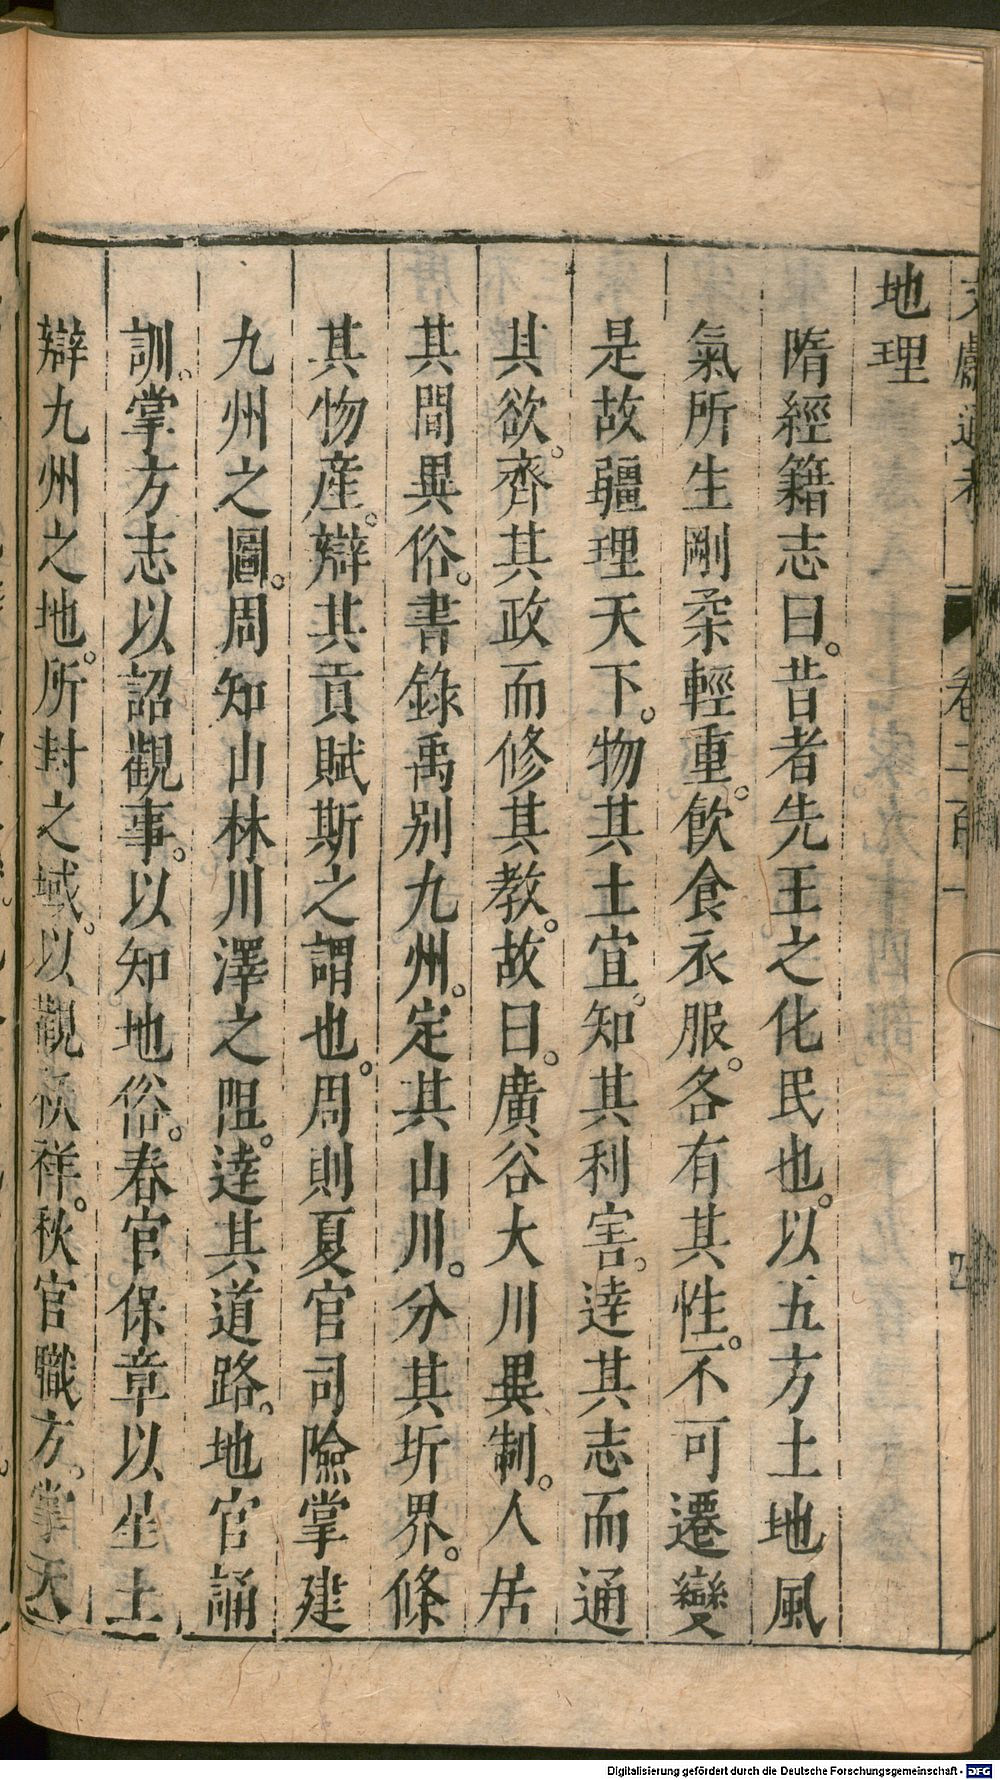 文獻通考 卷二百一 四
地理
隋經籍志曰。昔者先王之化民也。以五方土地風
氣所生剛柔輕重。飲食衣服。各有其性。不可遷變
是故疆理天下。物其土宜。知其利害。達其志而通
其欲。齊其政而修其教。故曰。廣谷大川異制。人居
其間異俗。書錄禹別九州。定其山川。分其圻界。條
其物產。辯其貢賦斯之謂也。周則夏官司險掌建
九州之圖。周知山林川澤之阻。達其道路。地官誦
訓。掌方志以詔觀事。以知地俗。春官保章以星土
辯九州之地。所封之域。以觀祅祥。秋官職方。掌天
Digitalisierung gefördert durch die Deutsche Forschungsgemeinschaft - DFG